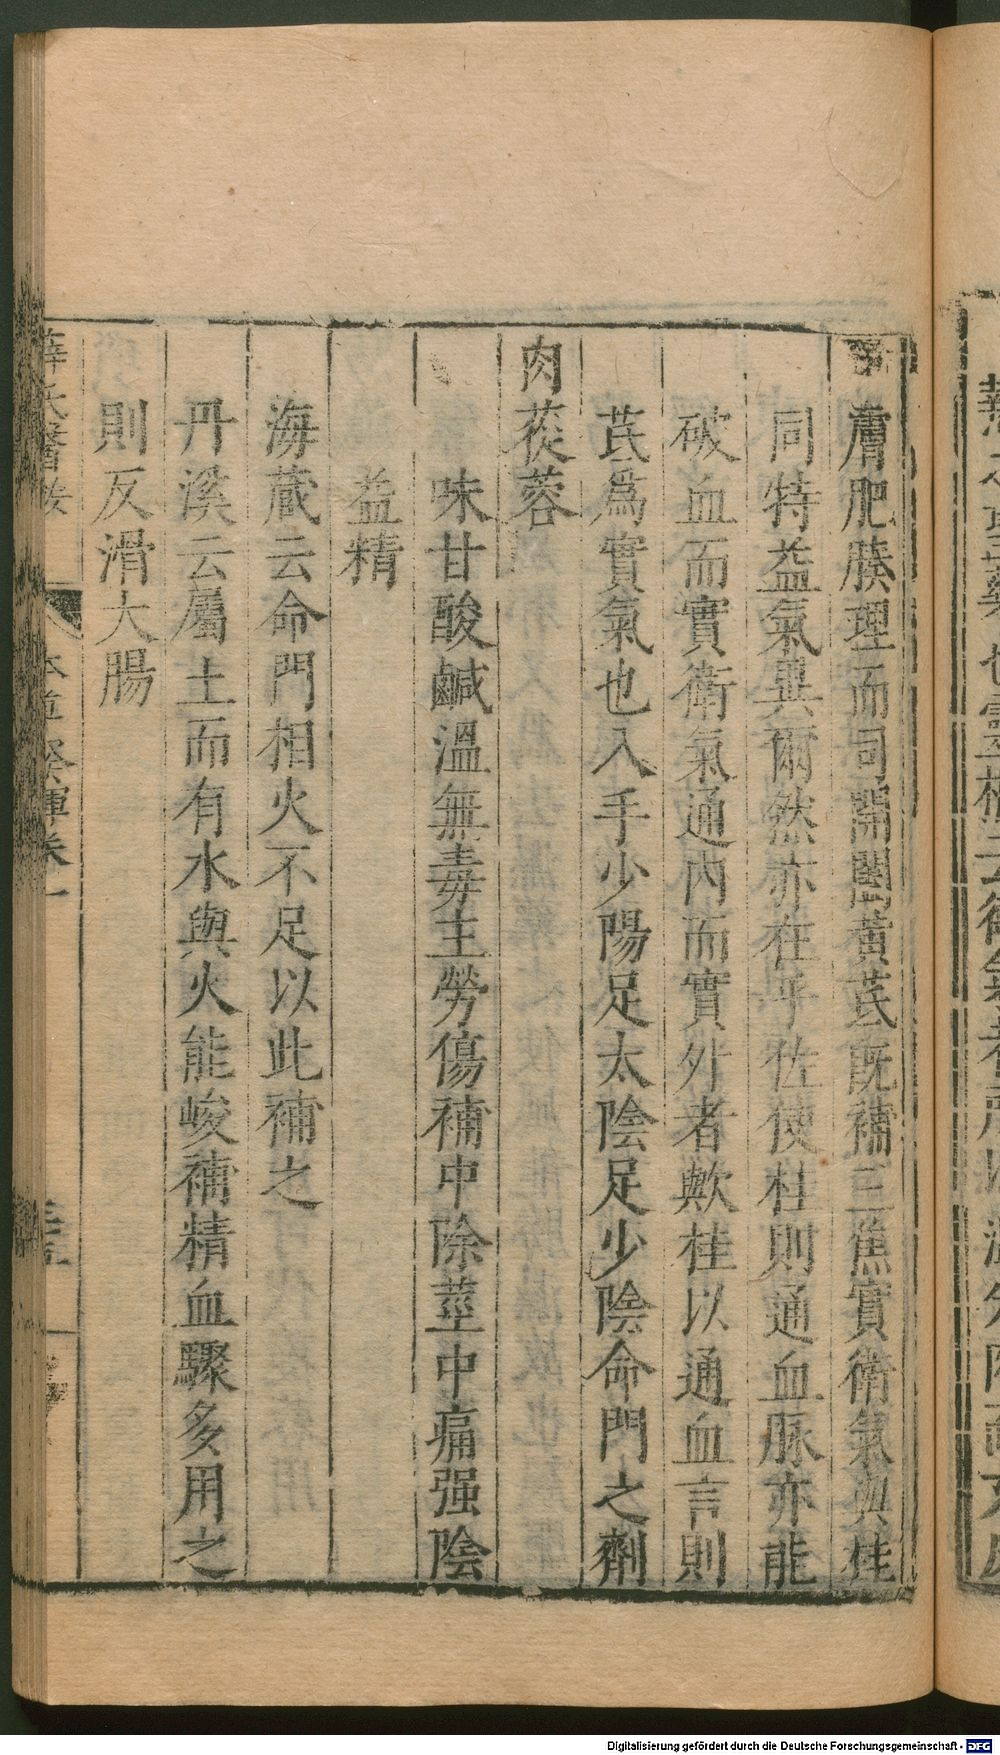 膚肥腠理而司開闔黃芪既補三焦實衛氣與桂
同特益氣異爾然亦在乎佐使桂則通血脉亦能
破血而實衛氣通內而實外者歟桂以通血言則
芪爲實氣也入手少陽足太陰足少陰命門之劑
肉蓯蓉
味甘酸鹹溫無毒主勞傷補中除莖中痛强陰
益精
海藏云命門相火不足以此補之
丹溪云屬土而有水與火能峻補精血驟多用之
則反滑大腸
薛氏醫按 本草發揮卷一
Digitalisierung gefördert durch die Deutsche Forschungsgemeinschaft - DFG